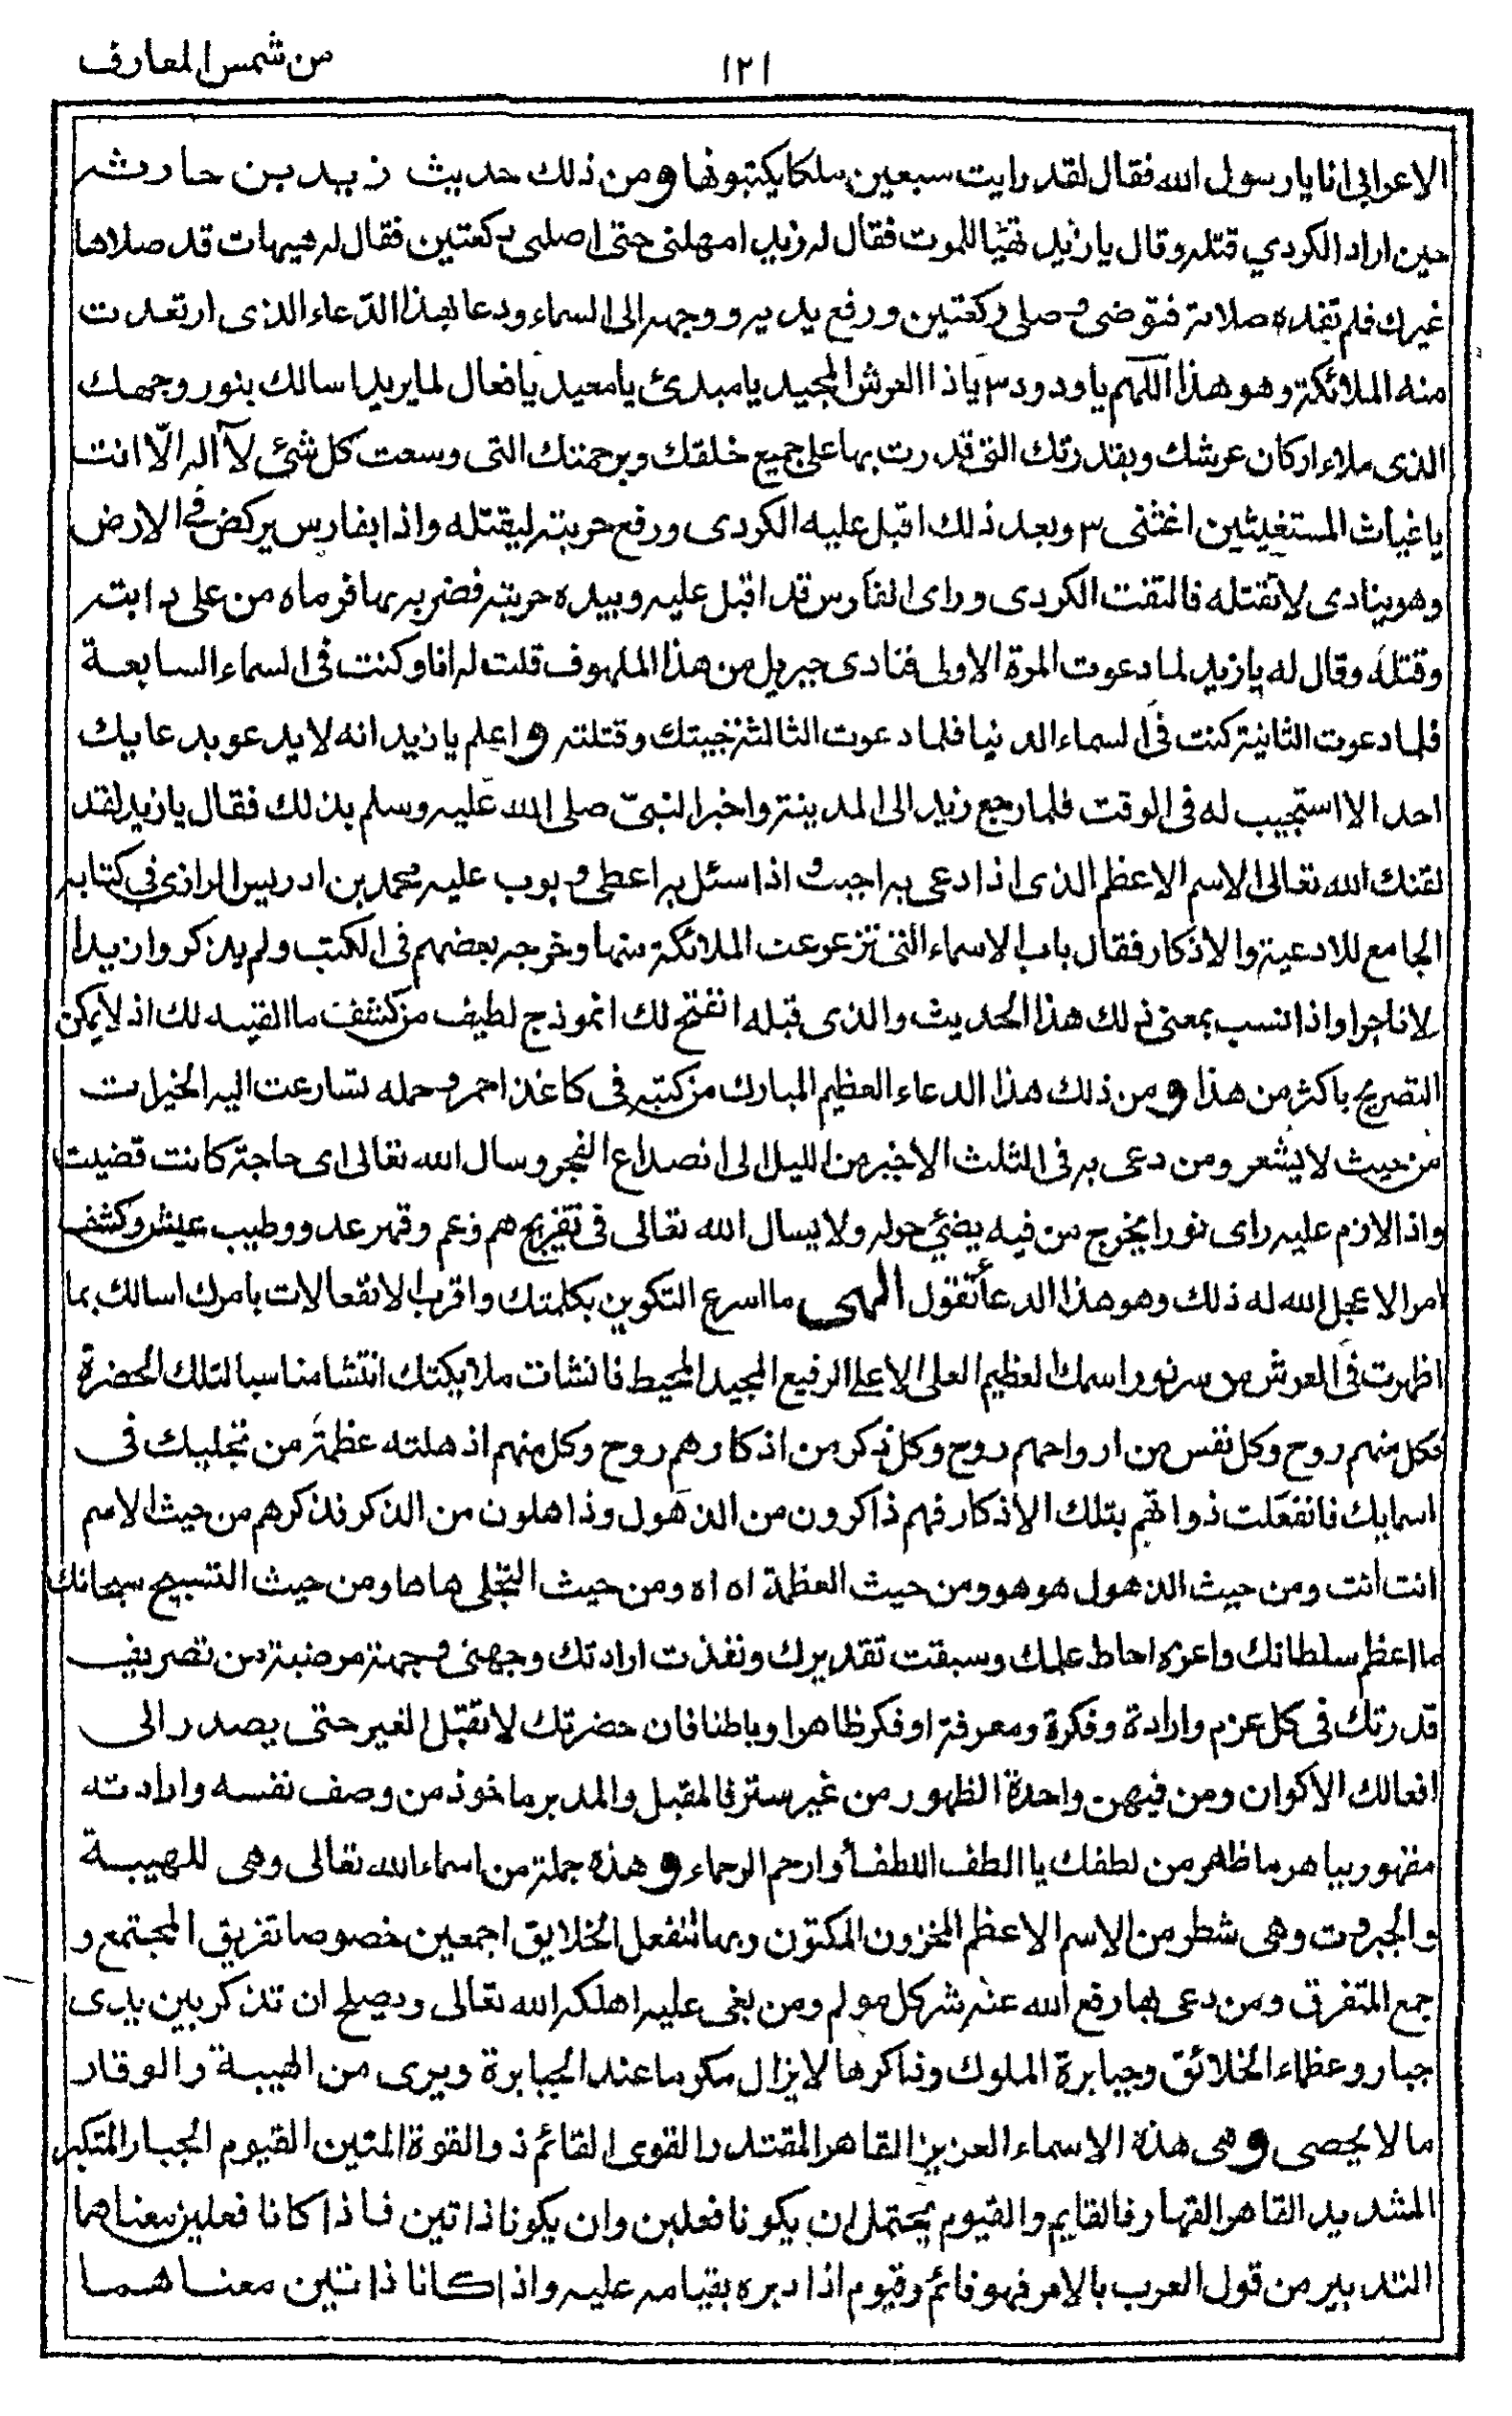 من شمس المعارف
١٢١
الاعرابى انا يا رسول الله فقال لقد رايت سبعين ملكا يكتبونها ومن ذلك حديث زيد بن حارثه
حين اراد الكردي قتله وقال يا زيد تهيا للموت فقال له زيد امهلنى حتى اصلى ركعتين فقال له هيهات قد صلاها
غيرك فلم تفده صلاته فتوضى وصلى ركعتين ورفع يديه ووجهه الى السماء ودعا بهذا الدّعاء الذى ارتعدت
منه الملائكة وهو هذا اللّهم يا ودود ٣ يا ذا العرش المجيد يا مبدئ يا معيد يا فعال لما يريد اسالك بنور وجهك
الذى ملاء اركان عرشك وبقدرتك التى قدرت بها على جميع خلقك وبرحمتك التى وسعت كل شئ لآ اله الّا انت
يا غياث المستغيثين اغثنى ٣ وبعد ذلك اقبل عليه الكردى ورفع حربته ليقتله واذا بفارس يركض في الارض
وهو ينادى لا تقتله فالتفت الكردى وراى الفارس قد اقبل عليه وبيده حربته فضربه بها فرماه من على دابته
وقتله وقال له يا زيد لما دعوت المرة الاولى فنادى جبريل من هذا الملهوف قلت له انا وكنت فى السماء السابعة
فلما دعوت الثانية كنت فى السماء الدنيا فلما دعوت الثالثة جيتك وقتلته واعلم يا زيد انه لا يدعو بدعايك
احد الا استجيب له فى الوقت فلما رجع زيد الى المدينة واخبر النبىّ صلى الله عليه وسلم بذلك فقال يا زيد لقد
لقنك الله تعالى الاسم الاعظم الذى اذا دعى به اجبت واذا سئل به اعطى وبوب عليه محمد بن ادريس الرازى فى كتابه
الجامع للادعية والاذكار فقال باب الاسماء التى تزعوعت الملائكة منها وخرجه بعضهم فى الكتب ولم يذكروا زيدا
لا تاجرا واذا ننسب بمعنى ذلك هذا الحديث والذى قبله انفتح لك انموذج لطيف من كشف ما القيه لك اذ لا يمكن
التصريح باكثر من هذا ومن ذلك هذا الدعاء العظيم المبارك من كتبه فى كاغذ احمر وحمله تسارعت اليه الخيرات
من حيث لا يشعر ومن دعى به فى الثلث الاخير من الليل الى انصداع الفجر وسال الله تعالى اى حاجة كانت قضيت
واذا لازم عليه راى نورا يخرج من فيه يضئ حوله ولا يسال الله تعالى فى تفريج هم وغم وقهر عدو وطيب عيش وكشف
امر الا عجل الله له ذلك وهو هذا الدعاء تقول الهى ما اسرع التكوين بكلمتك واقرب الانفعالات بامرك اسالك بما
اظهرت فى العرش من سر نور اسمك العظيم العلى الاعلى الرفيع المجيد المحيط فانشات ملايكتك انتشا مناسبا لتلك الحضرة
فكل منهم روح وكل نفس من ارواحهم روح وكل ذكر من اذكارهم روح وكل منهم اذهلته عظمة من تجليك فى
اسمايك فانفعلت ذواتهم بتلك الاذكار فهم ذاكرون من الذهول وذاهلون من الذكر نذكرهم من حيث الاسم
انت انت ومن حيث الذهول هو هو ومن حيث العظمة اه اه ومن حيث التجلى ها ها ومن حيث التسبيح سبحانك
ما اعظم سلطانك واعزه احاط علمك وسبقت تقديرك ونفذت ارادتك وجهنى وجهة مرضية من تصريف
قدرتك فى كل عزم وارادة وفكرة ومعرفة او فكر ظاهرا وباطنا فان حضرتك لا تقبل الغير حتى يصدر الى
افعالك الاكوان ومن فيهن واحدة الظهور من غير ستر فالمقبل والمدبر ماخوذ من وصف نفسه وارادته
مقهور بباهر ما ظهر من لطفك يا الطف اللطفأ وارحم الرحماء وهذه جملة من اسماء الله تعالى وهى للهيبة
والجبروت وهى شطر من الاسم الاعظم المخزون المكنون وبها تنفعل الخلايق اجمعين خصوصا تفريق المجتمع و
جمع المتفرق ومن دعى بها رفع الله عنه شر كل مولم ومن بغى عليه اهلكه الله تعالى ويصلح ان تذكر بين يدى
جبار وعظماء الخلائق وجبابرة الملوك وذاكرها لا يزال مكرما عند الجبابرة ويرى من الهيبة والوقار
ما لا يحصى وهى هذه الاسماء العزيز القاهر المقتدر القوى القائم ذو القوة المتين القيوم الجبار المتكبر
الشديد القاهر القهار فالقايم والقيوم يحتمل ان يكونا فعلين وان يكونا ذاتين فاذا كانا فعلين معناهما
التدبير من قول العرب بالامر فهو قائم وقيوم اذا دبره بقيامه عليه واذا كانا ذاتين معناهما